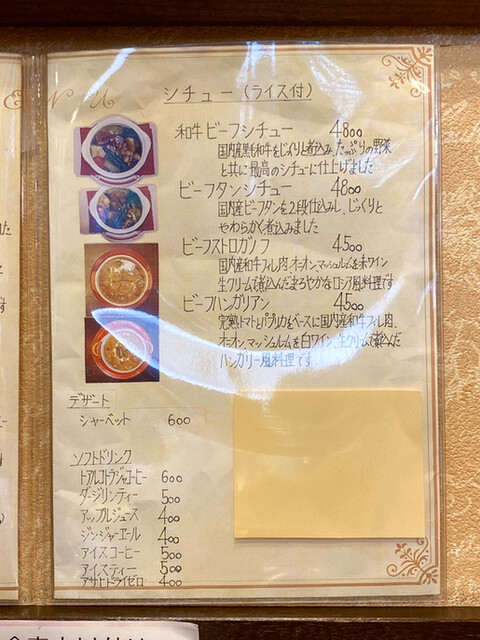 E N U
シチュー(ライス付)
和牛ビーフシチュー 4800
国内産黒和牛をじっくりと煮込み、たっぷりの野菜
と共に最高のシチューに仕上げました
ビーフタンシチュー 4800
国内産ビーフタンを2段仕込みし、じっくりと
やわらかく煮込みました
ビーフストロガノフ 4500
国内産和牛フィレ肉、オニオン、マッシュルムを赤ワイン
生クリームで煮込んだまろやかなロシア風料理です
ビーフハンガリアン 4500
完熟トマトとパプリカをベースに国内産和牛フィレ肉、
オニオン、マッシュルムを白ワイン、生クリームで煮込んだ
ハンガリー風料理です
デザート
シャーベット 600
ソフトドリンク
トアルコトラジャコーヒー 600
ダージリンティー 500
アップルジュース 400
ジンジャーエール 400
アイスコーヒー 500
アイスティー 500
アサヒドライゼロ 400